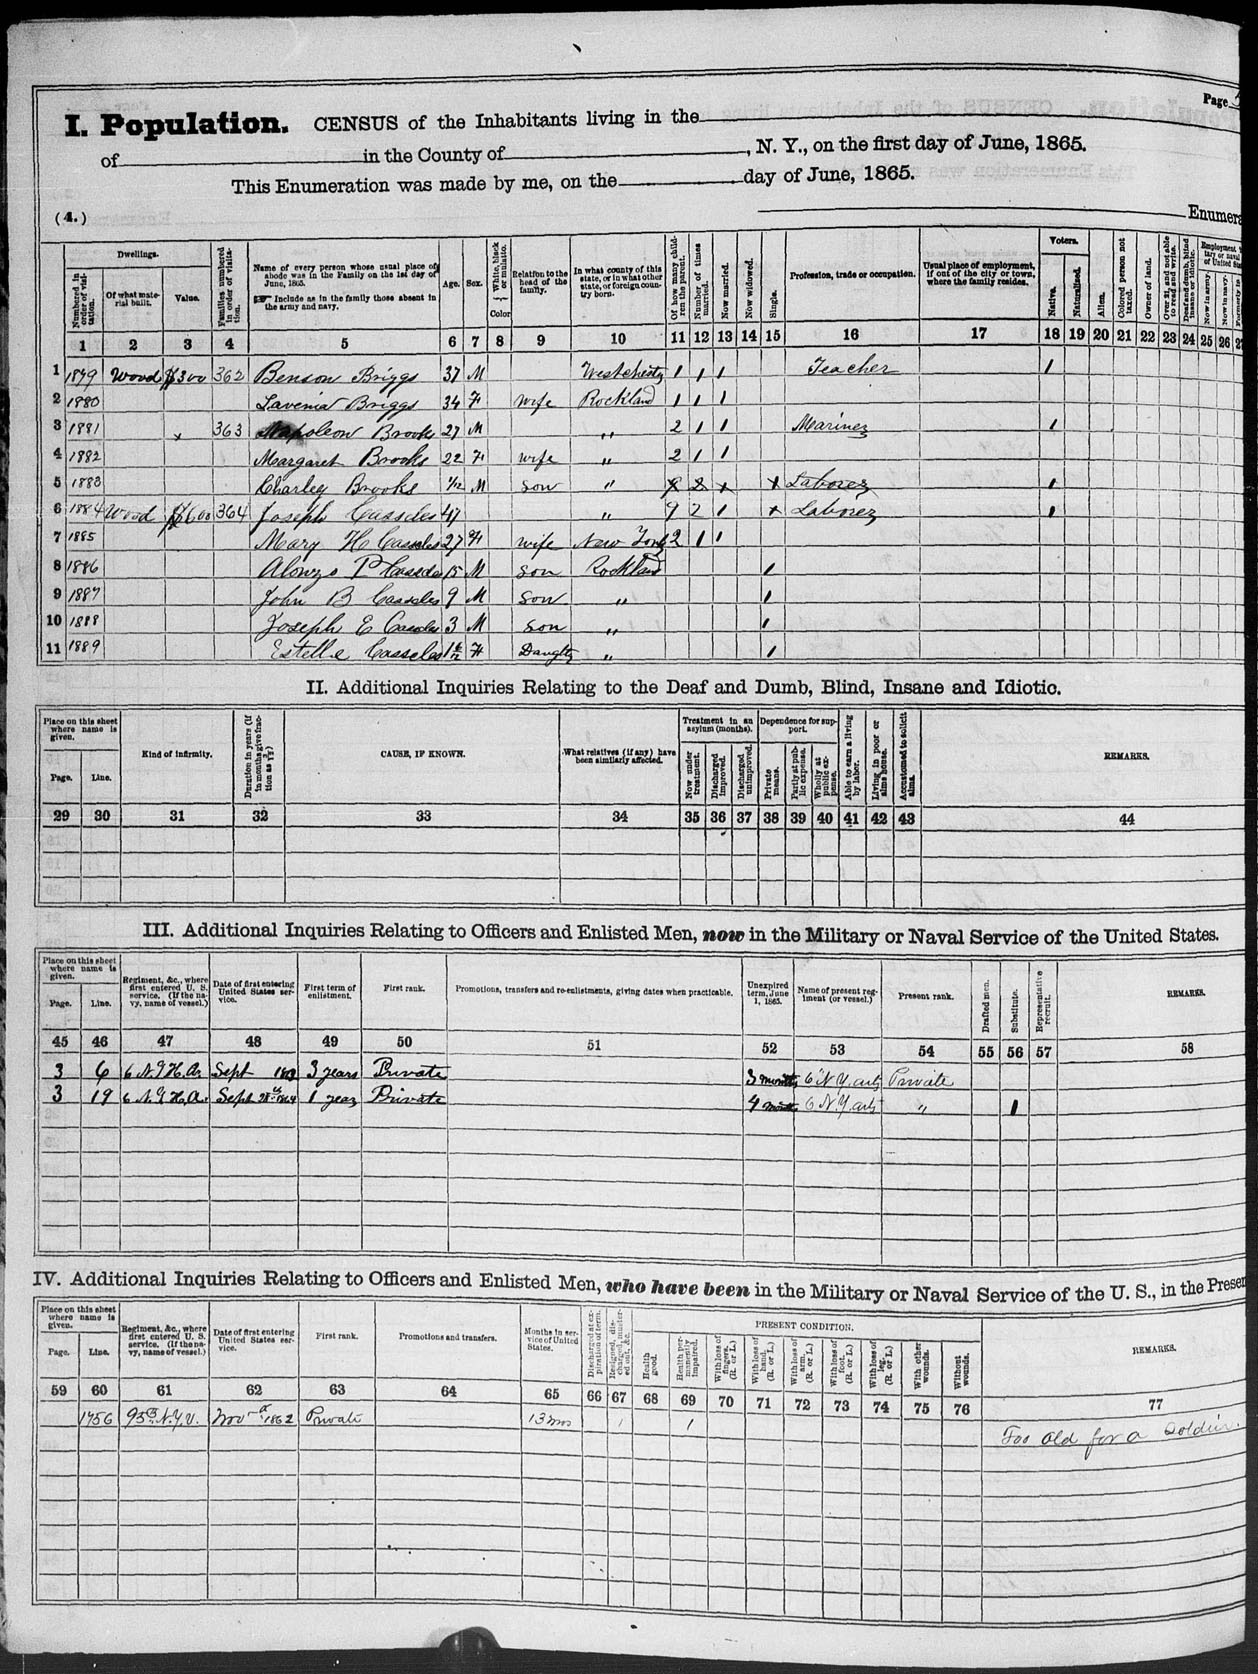 Page
I. Population. CENSUS of the Inhabitants living in the
of in the County of , N. Y., on the first day of June, 1865.
This Enumeration was made by me, on the day of June, 1865.
(4.) Enumera
Dwellings.
Numbered in order of visitation.
Of what material built.
Value.
Families numbered in order of visitation.
Name of every person whose usual place of abode was in the Family on the 1st day of June, 1865.
Include as in the family those absent in the army and navy.
Age.
Sex.
White, black or mulatto.
Color
Relation to the head of the family.
In what county of this state, or in what other state, or foreign country born.
Of how many children the parent.
Number of times married.
Now married.
Now widowed.
Single.
Profession, trade or occupation.
Usual place of employment, if out of the city or town, where the family resides.
Voters.
Native.
Naturalized.
Alien.
Colored person not taxed.
Owner of land.
Over 21, and not able to read and write.
Deaf and dumb, blind insane or idiotic.
Now in army.
Now in navy.
1 2 3 4 5 6 7 8 9 10 11 12 13 14 15 16 17 18 19 20 21 22 23 24 25 26
1 1879 Wood $300 362 Benson Briggs 37 M Westchester 1 1 1 Teacher 1
2 1880 Lavenia Briggs 34 F wife Rockland 1 1 1
3 1881 x 363 Napoleon Brooks 27 M " 2 1 1 Mariner 1
4 1882 Margaret Brooks 22 F wife " 2 1 1
5 1883 Charley Brooks 1/12 M Son " 2 x x Laborer 1
6 1884 Wood $600 364 Joseph Casseles 47 " 9 2 1 x Laborer 1
7 1885 Mary H Casseles 27 F wife New York 2 1 1
8 1886 Alonzo P Casseles 15 M son Rockland 1
9 1887 John B Casseles 9 M son " 1
10 1888 Joseph E Casseles 3 M son " 1
11 1889 Estelle Casseles F Daughtr " 1
II. Additional Inquiries Relating to the Deaf and Dumb, Blind, Insane and Idiotic.
Place on this sheet where name is given.
Page. Line.
Kind of infirmity.
Duration in years (if in months give fraction as 4/12)
CAUSE, IF KNOWN.
What relatives (if any) have been similarly affected.
Treatment in an asylum (months).
Now under treatment.
Discharged improved.
Discharged unimproved.
Dependence for support.
Private means.
Partly at public expense.
Wholly at public expense.
Able to earn a living by labor.
Living in poor or alms house.
Accustomed to solicit alms.
REMARKS.
29 30 31 32 33 34 35 36 37 38 39 40 41 42 43 44
III. Additional Inquiries Relating to Officers and Enlisted Men, now in the Military or Naval Service of the United States.
Place on this sheet where name is given.
Page. Line.
Regiment, &c., where first entered U. S. service. (If the navy, name of vessel.)
Date of first entering United States service.
First term of enlistment.
First rank.
Promotions, transfers and re-enlistments, giving dates when practicable.
Unexpired term, June 1, 1865.
Name of present regiment (or vessel.)
Present rank.
Drafted men.
Substitute.
Representative recruit.
REMARKS.
45 46 47 48 49 50 51 52 53 54 55 56 57 58
3 6 6 N.Y.H.A. Sept 3 years Private 3 months 6 N.Y. arty Private
3 19 6 N.Y.H.A. Sept 1864 1 year Private 4 months 6 N.Y arty " 1
IV. Additional Inquiries Relating to Officers and Enlisted Men, who have been in the Military or Naval Service of the U. S., in the Presen
Place on this sheet where name is given.
Page. Line.
Regiment, &c., where first entered U. S. service. (If the navy, name of vessel.)
Date of first entering United States service.
First rank.
Promotions and transfers.
Months in service of United States.
Discharged at expiration of term.
Resigned, discharged, mustered out, &c.
PRESENT CONDITION.
Health good.
Health permanently impaired.
With loss of fingers. (R. or L.)
With loss of hand. (R. or L.)
With loss of arm. (R. or L.)
With loss of foot. (R. or L.)
With loss of leg. (R. or L.)
With other wounds.
Without wounds.
REMARKS.
59 60 61 62 63 64 65 66 67 68 69 70 71 72 73 74 75 76 77
1756 95th N.Y.V. Nov 1862 Private 13 mos 1 1 Too old for a Soldier.